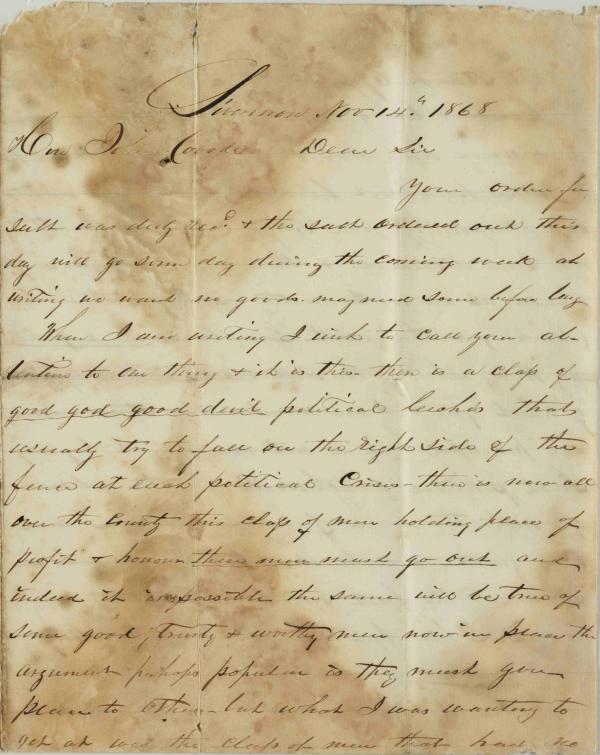 Nov 14th 1868
Hon John Covode Dear Sir
Your order for
salt was duly recd & the salt ordered out this
day will go some day during the coming week at
writing we want no goods. may need some before long
When I am writing I wish to call your at-
tention to one thing & it is this - there is a class of
good god good devil political leeches that
usually try to fall on the right side of the
fence at each political Crisis - there is now all
over the County this class of men holding place of
profit & honour these men must go out and
indeed it is possible the same will be true of
some good, trusty & worthy men now in place the
argument perhaps popular is they must give
place to others - but what I was wanting to
get at was the class of men that had no